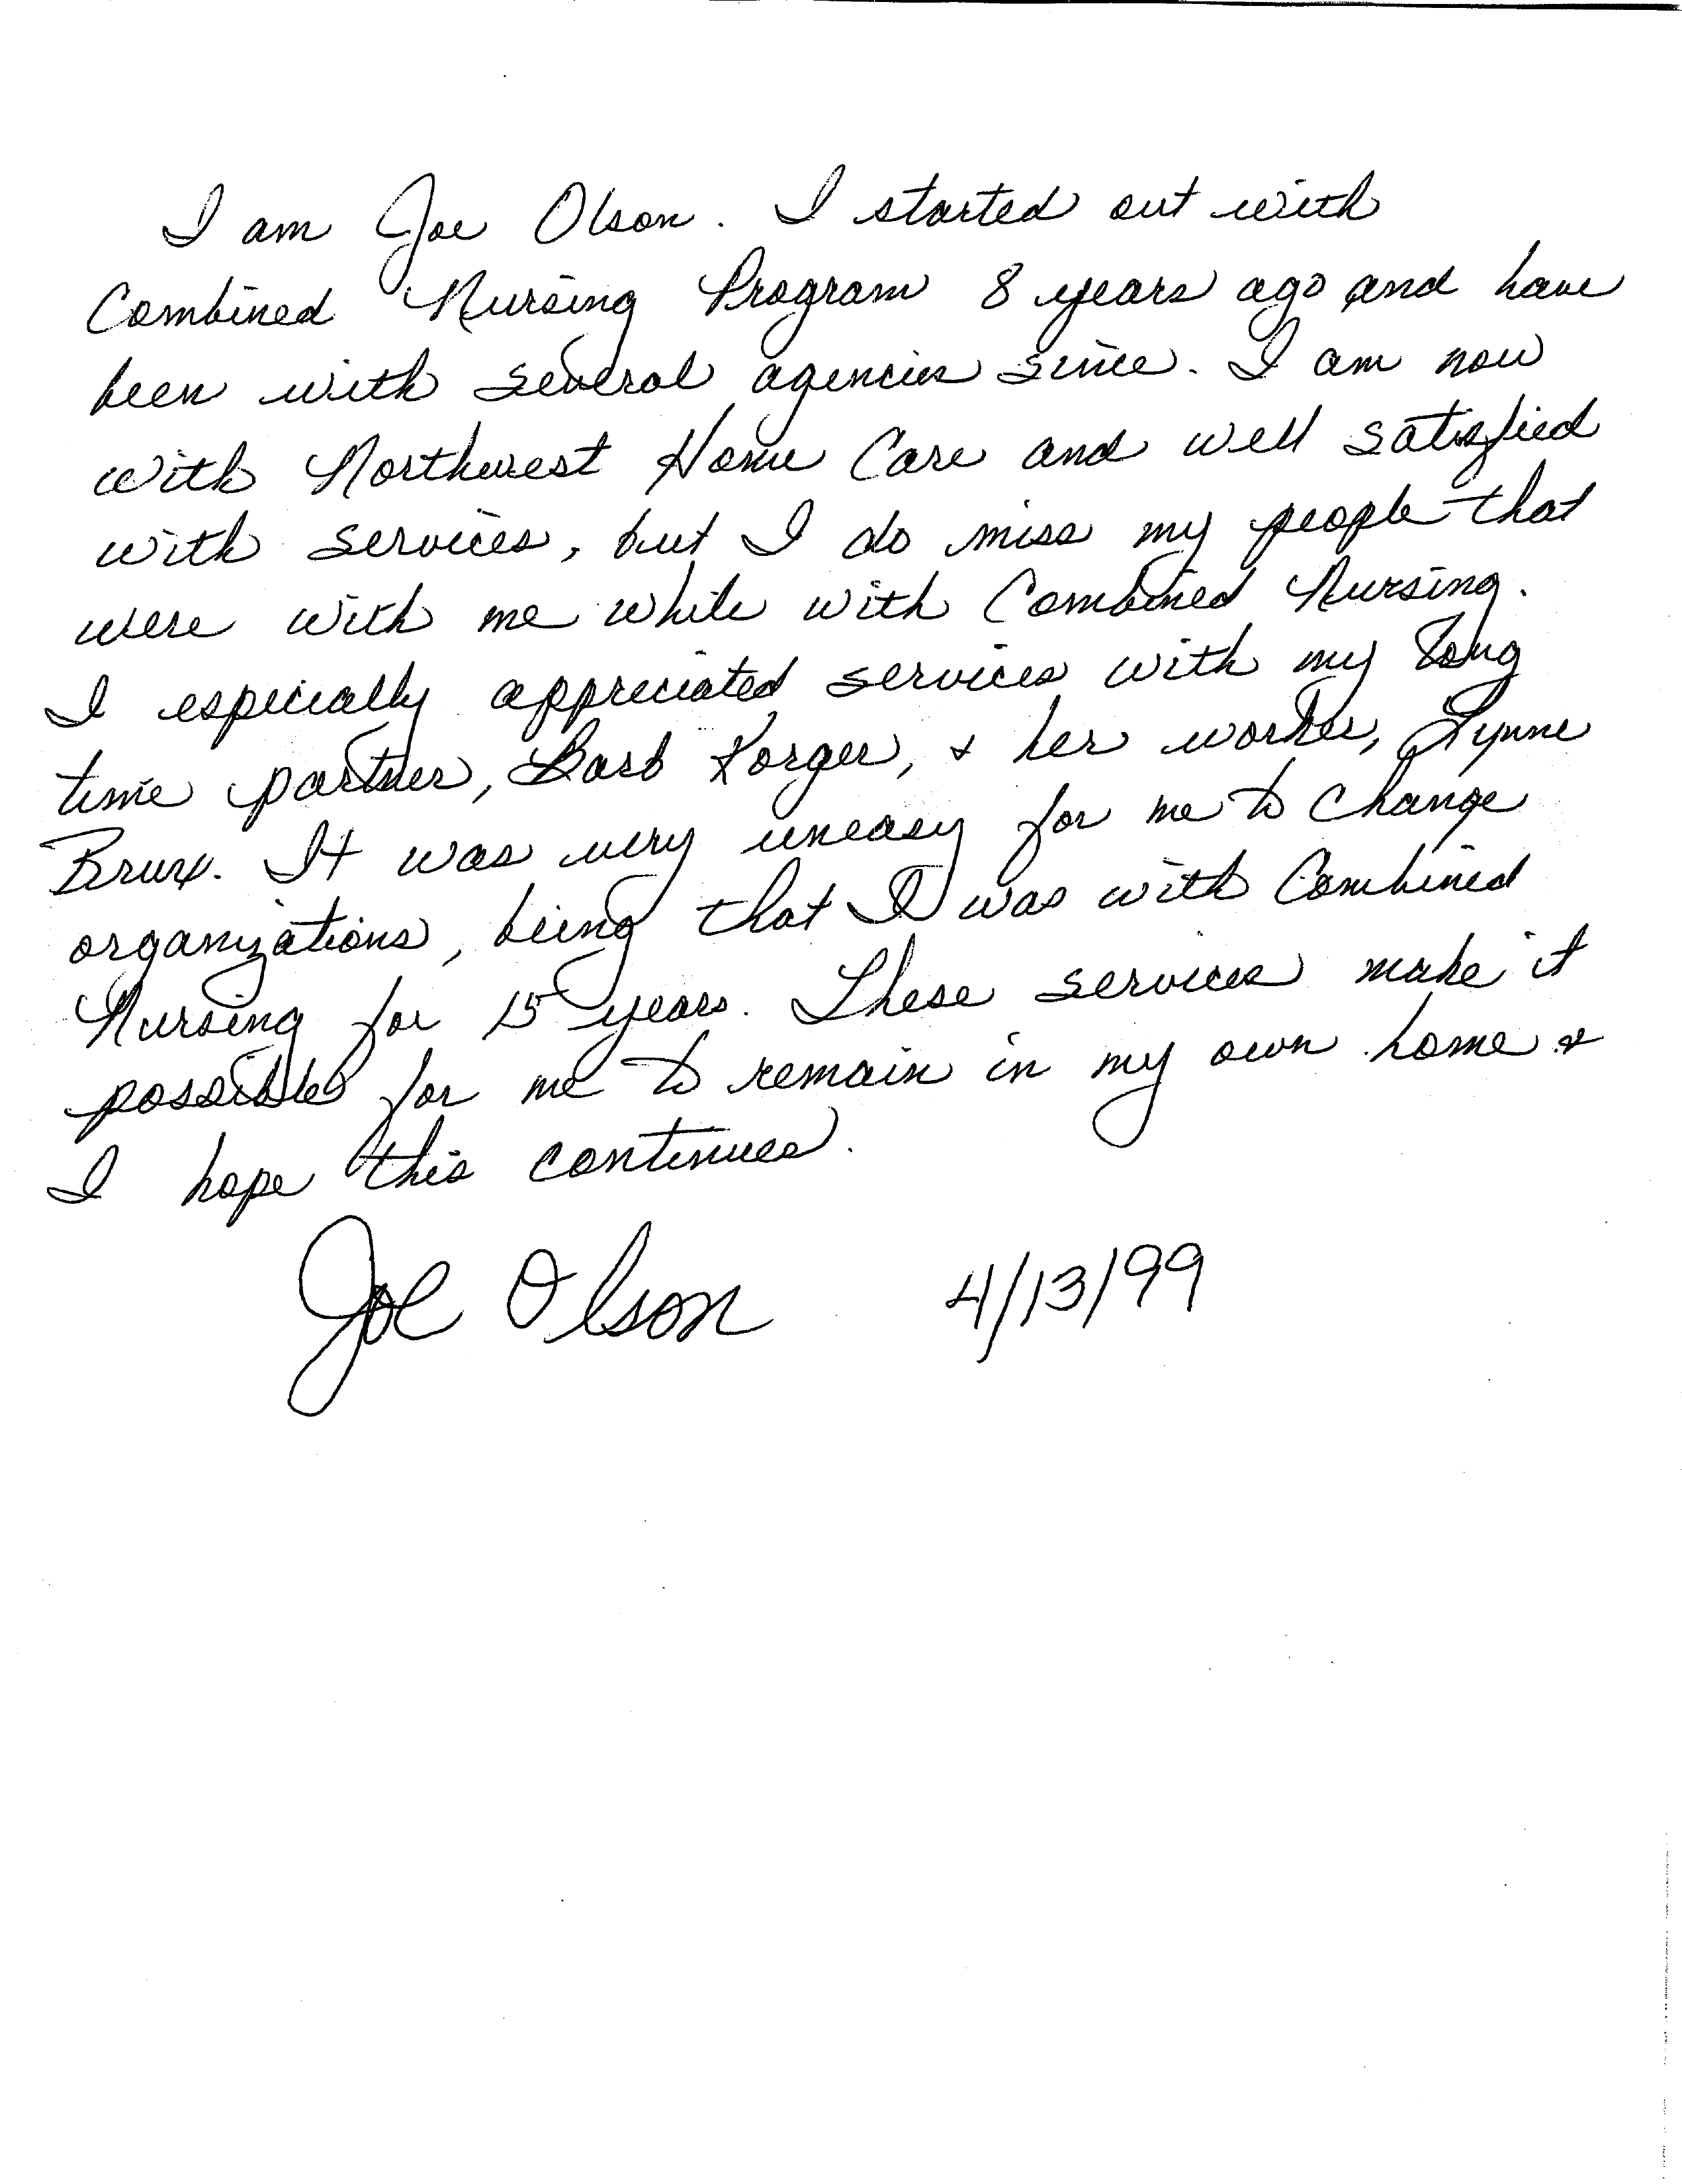 I am Joe Olson. I started out with
Combined Nursing Program 8 years ago and have
been with several agencies since. I am now
with Northwest Home Care and well satisfied
with services, but I do miss my people that
were with me while with Combined Nursing.
I especially appreciated services with my long
time partner, Barb Korger, & her worker, Lynne
Brux. It was very uneasy for me to change
organizations, being that I was with Combined
Nursing for 15 years. These services make it
possible for me to remain in my own home &
I hope this continues.
Joe Olson 4/13/99